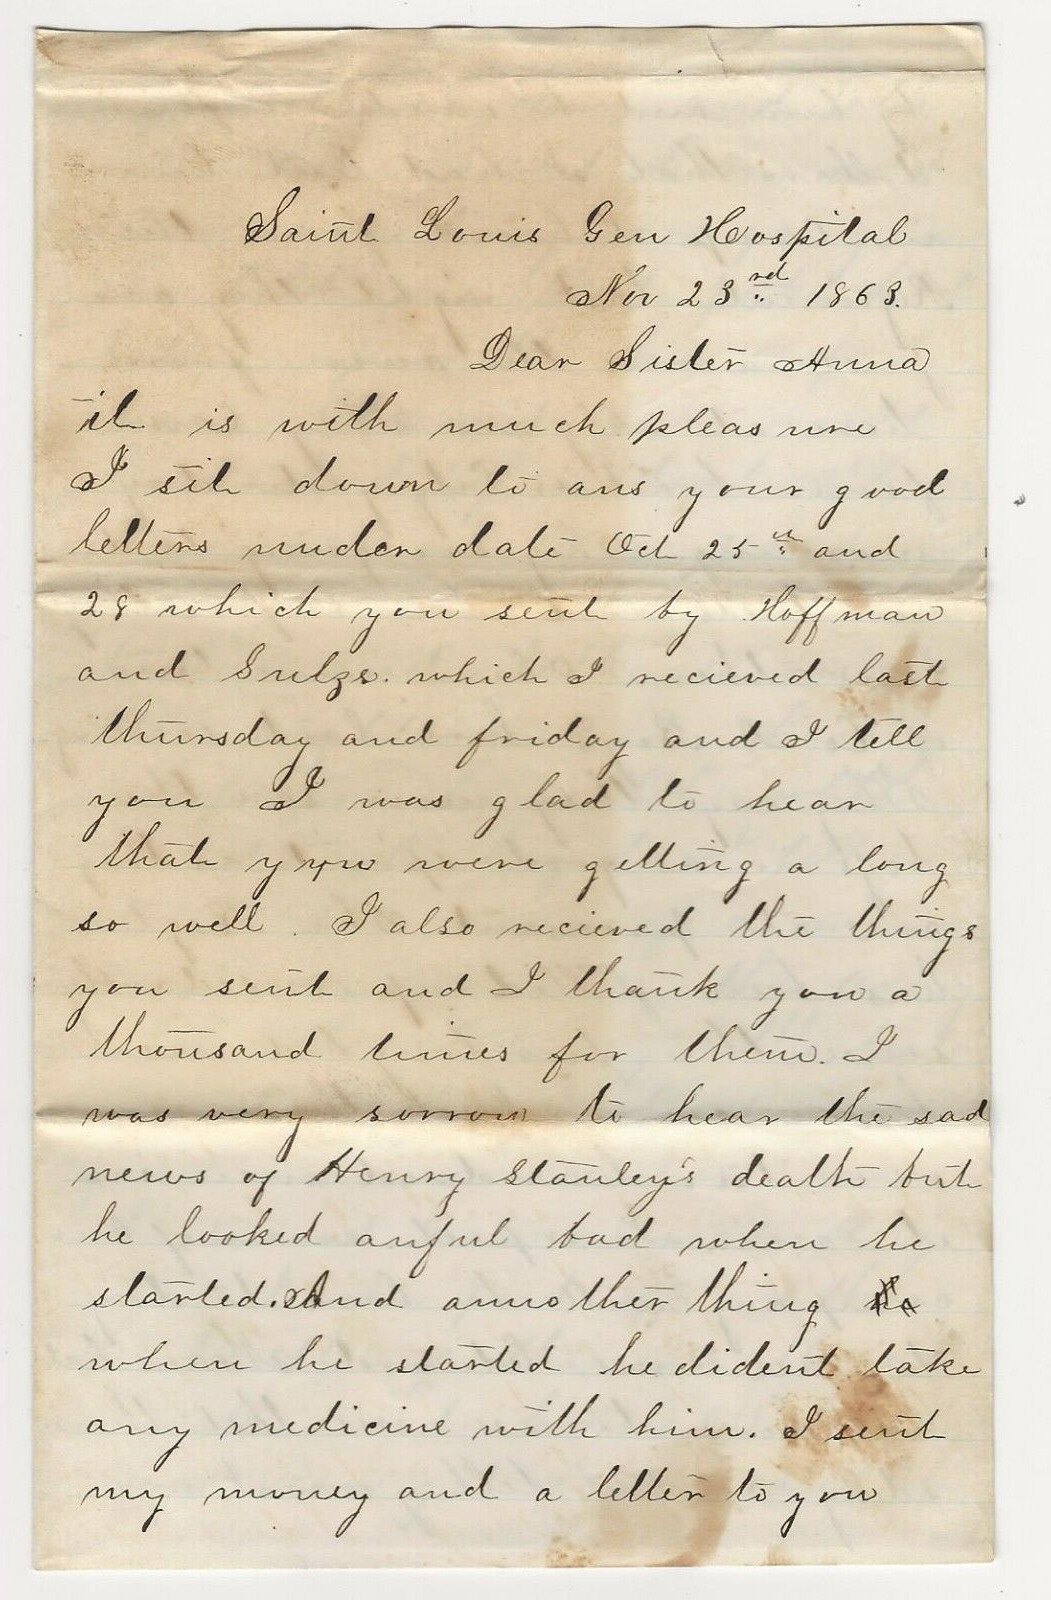 Saint Louis Gen Hospital
Nov 23rd 1863.
Dear Sister Anna
it is with much pleas ure
I sit down to ans your good
letters under date Oct 25th and
28 which you sent by Hoffman
and Sulzs. which I recieved last
thursday and friday and I tell
you I was glad to hear
that you were getting a long
so well. I also recieved the things
you sent and I thank you a
thousand times for them. I
was very sorrow to hear the sad
news of Henry Stanley's death but
he looked anful bad when he
started. And annother thing
when he started he dident take
any medicine with him. I sent
my money and a letter to you